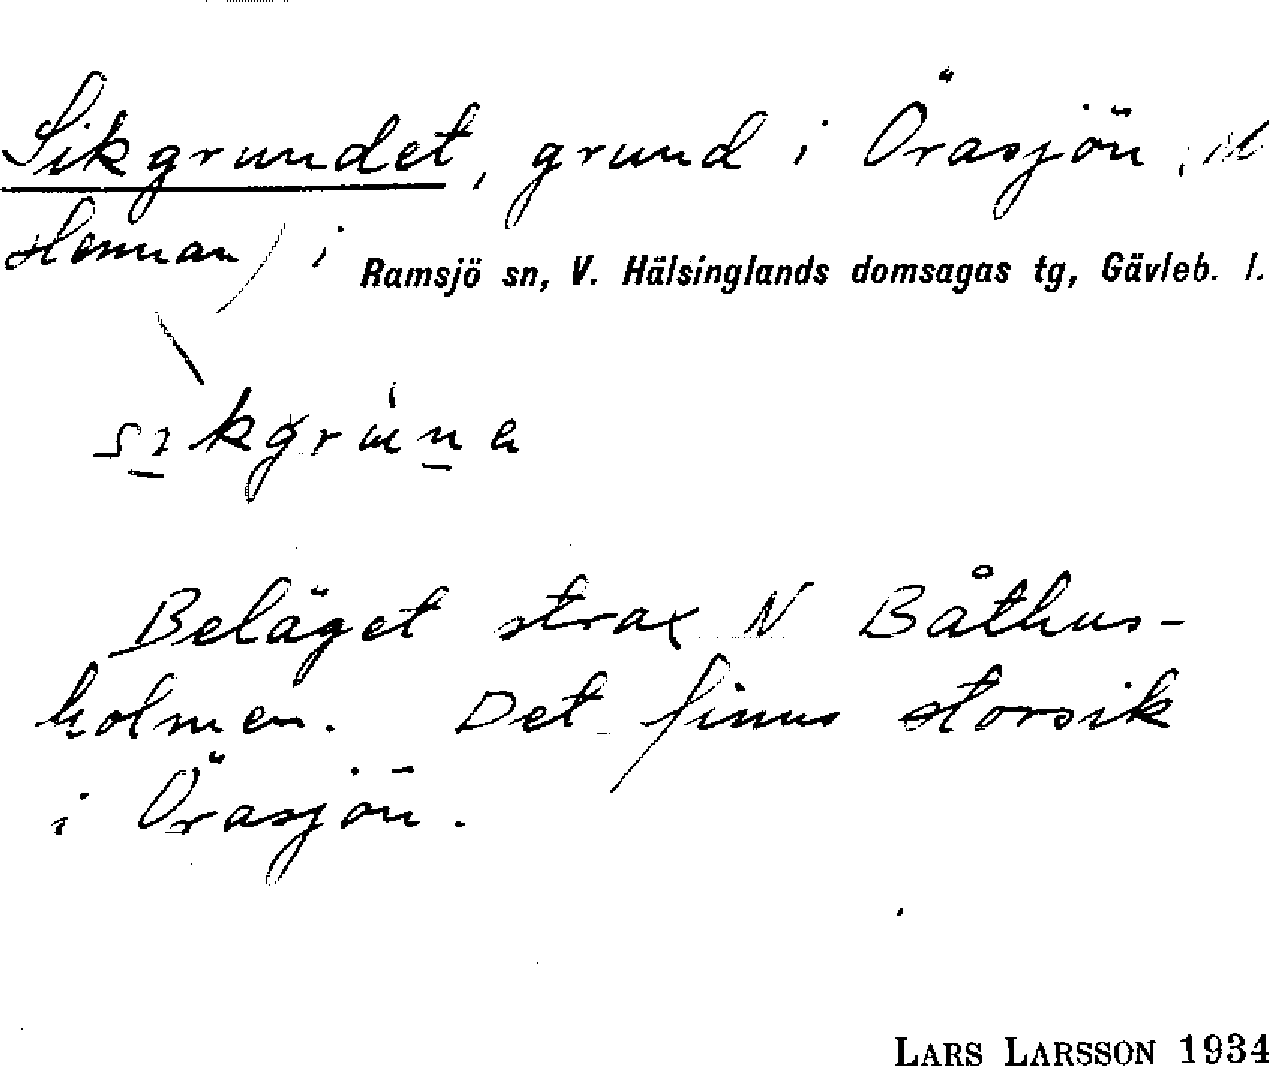 Sikgrundet, grund i Örasjön,
Hennan) i Ramsjö sn, V. Hälsinglands domsagas tg, Gävleb. l.
Beläget strax N Båthus-
holmen. Det finns storsik
i Örasjön.
LARS LARSSON 1934